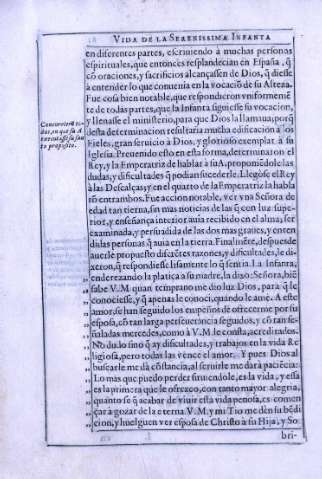 18 VIDA DE LA SERENISSIMA INFANTA
en diferentes partes, escriuiendo à muchas personas
espirituales, que entonces resplandecian en España, q̃
cõ oraciones, y sacrificios alcançassen de Dios, q̃ diesse
à entender lo que conuenia en la vocaciõ de su Alteza.
Fue cosa bien notable, que respondieron vniformemẽ
te de todas partes, que la Infanta siguiesse su vocacion,
y llenasse el ministerio, para que Dios la llamaua, porq̃
desta determinacion resultaria mucha edificacion à los
Fieles, gran seruicio à Dios, y glorioso exemplar à su
Iglesia. Preuenido esto en esta forma, determinaron el
Rey, y la Emperatriz de hablar à su A. proponiẽdole las
dudas, y dificultades q̃ podian sucederle. Llegòse el Rey
à las Descalças, y en el quarto de la Emperatriz la habla
rõ entrambos. Fue accion notable, ver vna Señora de
edad tan tierna, sin mas noticias de las q̃ con luz supe-
rior, y enseñança interior auia recibido en el alma, ser
examinada, y persuadida de las dos mas graues, y enten
didas personas q̃ auia en la tierra. Finalmẽte, despues de
auerle propuesto diferẽtes razones, y dificultades, le di-
xeron, q̃ respondiesse lo que sentia. La Infanta,
enderezando la platica à su madre, la dixo: Señora, biẽ
„ sabe V.M. quan temprano me diò luz Dios, para q̃ le
„ conociesse, y q̃ apenas le conoci, quando le amè. A este
„ amor, se han seguido los empeños de ofrecerme por su
„ esposa, cõ tan larga perseuerancia seguidos, y cõ tan se-
„ ñaladas mercedes, como à V.M. le consta, acreditados.
„ No dudo sino q̃ ay dificultades, y trabajos en la vida Re
„ ligiosa, pero todas las vence el amor. Y pues Dios al
„ buscarle me dà cõstancia, al seruirle me darà paciẽcia:
„ Lo mas que puedo perder siruiendole, es la vida, y essa
„ es la primera que le ofrezco, con tanto mayor alegria,
„ quanto se q̃ acabar de viuir esta vida penosa, es comen
„ çar à gozar de la eterna. V.M. y mi Tio me dèn su bẽdi
„ cion, y huelguen ver esposa de Christo à su Hija, y So
bri-
Concurrierõ to
dos, en que su A
executasse su san
to proposito.